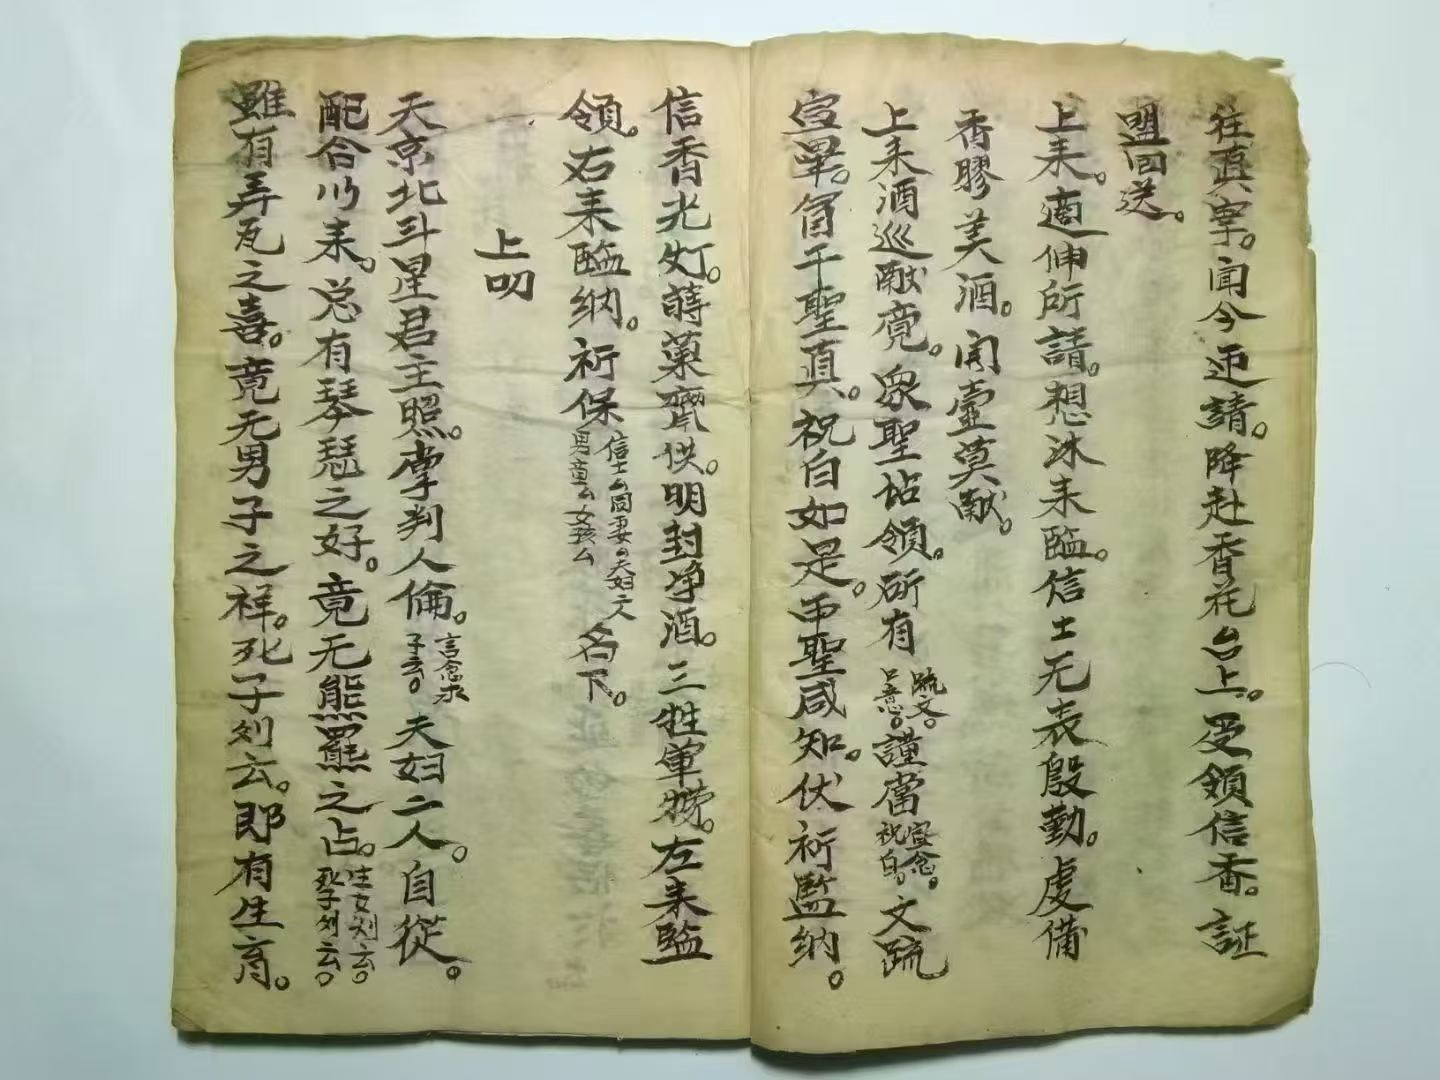 往真字。闻今迎請。降赴香花台上。受領信香。証
盟回送。
上来。適伸所請。想沐来臨。信士无表殷勤。虔備
香膠美酒。開壺奠献。
上来酒巡献竟。眾聖沾領。所有疏文。口意。謹當宣念。祝白。文疏
宣畢。冒干聖真。祝白如是。帀聖咸知。伏祈監納。
信香光灯。蒔菓齋供。明封净酒。三牲单捞。左来監
領。右来臨纳。祈保信士厶同妻厶夫妇二人男童厶女孩厶名下。
上叨
天京北斗星君主照。掌判人倫。言念求子云。夫妇二人。自從。
配合以来。总有琴瑟之好。竟无熊羆之占。生女刘云。死子刘云。
雖有弄瓦之喜。竟无男子之祥。死子刘云。即有生育。